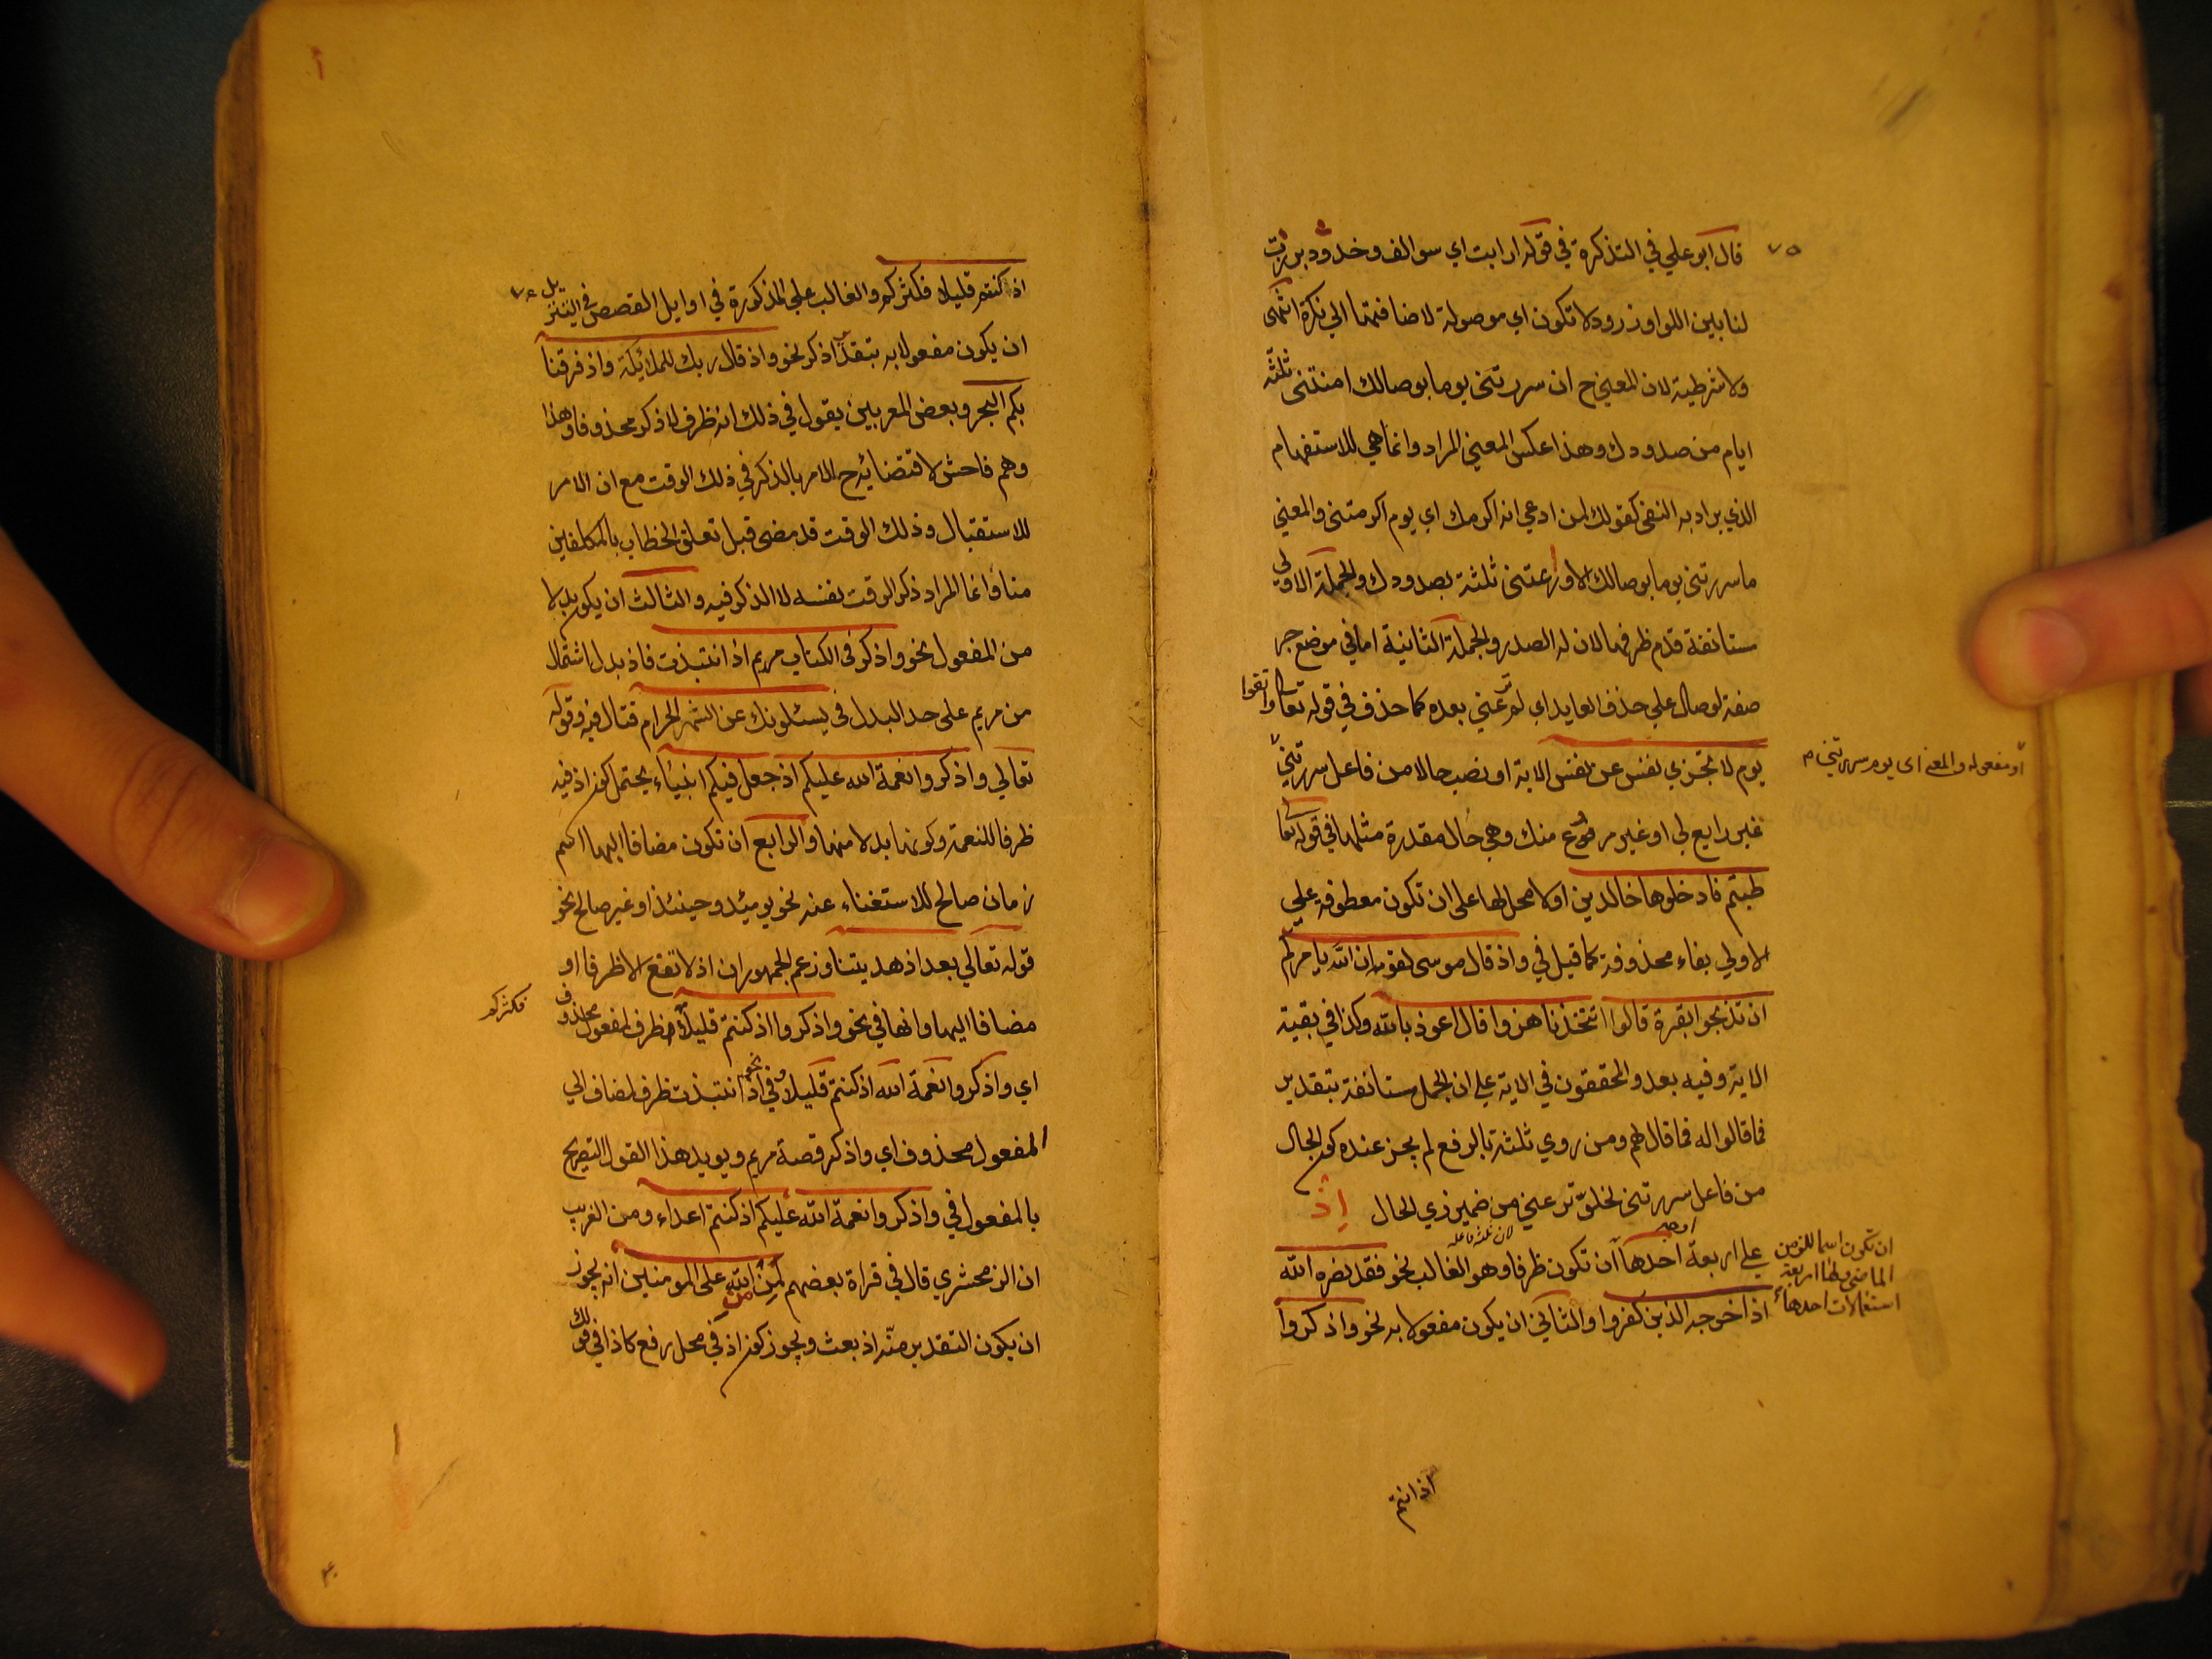 ٧٥
قال ابو علي في التذكرة في قوله ارايت اي سوالف وخدود برزت
لنا بين اللوا وزرود لا تكون اي موصولة لاضافتها الي نكرة انتهى
ولا شرطية لان المعني ح ان سررتني يوما بوصالك امنتني ثلثة
ايام من صدودك وهذا عكس المعني المراد وانما هي للاستفهام
الذي يراد به النفي كقولك لمن ادعي انه اكرمك اي يوم اكرمتني والمعني
ما سررتني يوما بوصالك الا ورعتني ثلثة بصدودك والجملة الاولي
ستانفة قدم ظرفها لان له الصدر والجملة الثانية اما في موضع جر
صفة لوصال علي حذف العايد اي لم ترعني بعده كما حذف في قوله تعا واتقوا
يوم لا تجزي نفس عن نفس الاية او نصب حالا من فاعل سررتني
او مفعوله والمعني اي يوم سررتني م
غير رايع لي او غير مروع منك وهي حال مقدرة مثلها في قوله تعا
طبتم فادخلوها خالدين اولا محل لها على ان تكون معطوفة علي
الاولي بفاء محذوفة كما قيل في واذ قال موسى لقومه ان الله يامركم
ان تذبحوا بقرة قالوا اتتخذنا هزوا قال اعوذ بالله وكذا في بقية
الاية وفيه بعد والمحققون في الاية علي ان الجمل ستانفة بتقدير
فما قالوا له فما قال لهم ومن روي ثلثة بالرفع لم يجز عنده كون الحال
من فاعل سررتني لخلو ترعني من ضمير ذي الحال اذ
لان ثلثة فاعله
علي اربعة اوجه احدها ان تكون ظرفا وهو الغالب نحو فقد نصره الله
ان تكون اسما للزمن
الماضي ولها اربعة
استعمالات احدها
اذ اخرجه الذين كفروا والثاني ان يكون مفعولا به نحو واذكروا
اذ انتم
اذ كنتم قليلا فكثركم والغالب علي المذكورة في اوايل القصص في التنزيل
٧٤
ان يكون مفعولا به بتقدير اذكر نحو واذ قال ربك للملائكة واذ فرقنا
بكم البحر وبعض المعربين يقول في ذلك انه ظرف لاذكر محذوفا وهذا
وهم فاحش لاقتضائه ح الامر بالذكر في ذلك الوقت مع ان الامر
للاستقبال وذلك الوقت قد مضى قبل تعلق الخطاب بالمكلفين
منا وانما المراد ذكر الوقت نفسه لا الذكر فيه والثالث ان يكون بدلا
من المفعول نحو واذكر في الكتاب مريم اذ انتبذت فاذ بدل اشتمال
من مريم على حد البدل في يسئلونك عن الشهر الحرام قتال فيه وقوله
تعالي واذكروا نعمة الله عليكم اذ جعل فيكم انبياء يحتمل كون اذ فيه
ظرفا للنعمة وكونها بدلا منها والرابع ان تكون مضافا اليها اسم
زمان صالح للاستغناء عنه نحو يومئذ وحينئذ او غير صالح نحو
قوله تعالي بعد اذ هديتنا وزعم الجمهور ان اذ لا تقع الا ظرفا او
مضافا اليها وانها في نحو واذكروا اذ كنتم قليلا ظرف لمفعول محذوف
فكثركم
اي واذكروا نعمة الله اذ كنتم قليلا وفي نحو اذ انتبذت ظرف لمضاف الي
المفعول محذوف اي واذكر قصة مريم ويويد هذا القول التصريح
بالمفعول في واذكروا نعمة الله عليكم اذ كنتم اعداء ومن الغريب
ان الزمخشري قال في قراة بعضهم لمن من الله على المومنين انه يجوز
ان يكون التقدير منه اذ بعث ويجوز كون اذ في محل رفع كاذا في قولك